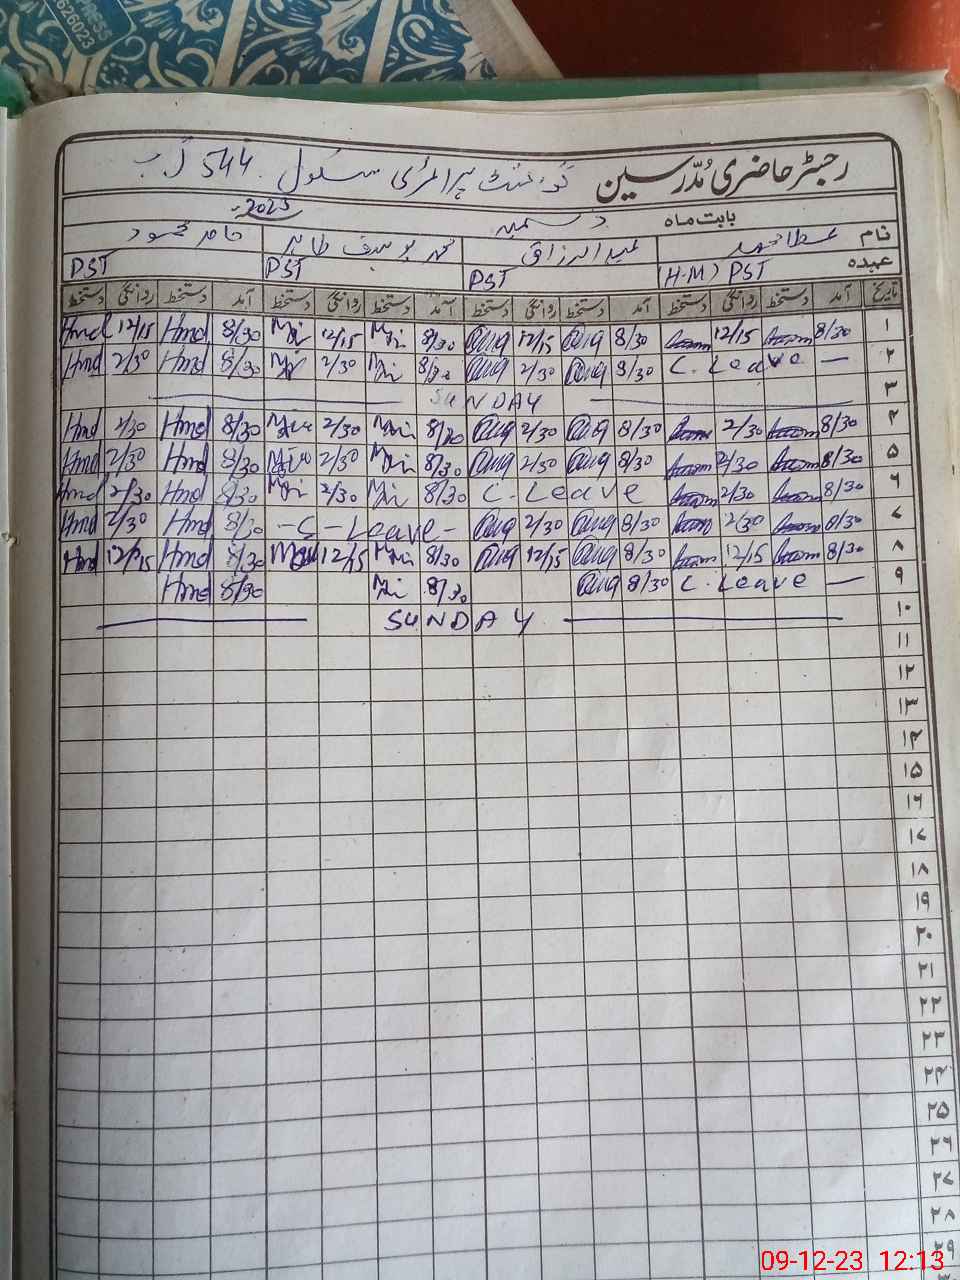 PRESS
626023
رجسٹر حاضری مُدرسین گورنمنٹ پرائمری سکول 544 گ ب
بابت ماہ دسمبر 2023ء
نام عطا محمد عبدالرزاق محمد یوسف طاہر حامد محمود
عہدہ (H.M) PST PST PST PST
تاریخ آمد دستخط روانگی دستخط آمد دستخط روانگی دستخط آمد دستخط روانگی دستخط آمد دستخط روانگی دستخط
۱ 8/30 12/15 8/30 12/15 8/30 12/15 8/30 Hmd 12/15 Hmd
۲ — C. Leave 8/30 2/30 8/30 2/30 8/30 Hmd 2/30 Hmd
۳ SUNDAY
۴ 8/30 2/30 8/30 2/30 8/30 2/30 8/30 Hmd 2/30 Hmd
۵ 8/30 2/30 8/30 2/30 8/30 2/30 8/30 Hmd 2/30 Hmd
۶ 8/30 2/30 C. Leave 8/30 2/30 8/30 Hmd 2/30 Hmd
۷ 8/30 2/30 8/30 2/30 - C - Leave - 8/30 Hmd 2/30 Hmd
۸ 8/30 12/15 8/30 12/15 8/30 12/15 8/30 Hmd 12/15 Hmd
۹ — C. Leave 8/30 8/30 8/30 Hmd
۱۰ SUNDAY
۱۱
۱۲
۱۳
۱۴
۱۵
۱۶
۱۷
۱۸
۱۹
۲۰
۲۱
۲۲
۲۳
۲۴
۲۵
۲۶
۲۷
۲۸
۲۹
09-12-23 12:13